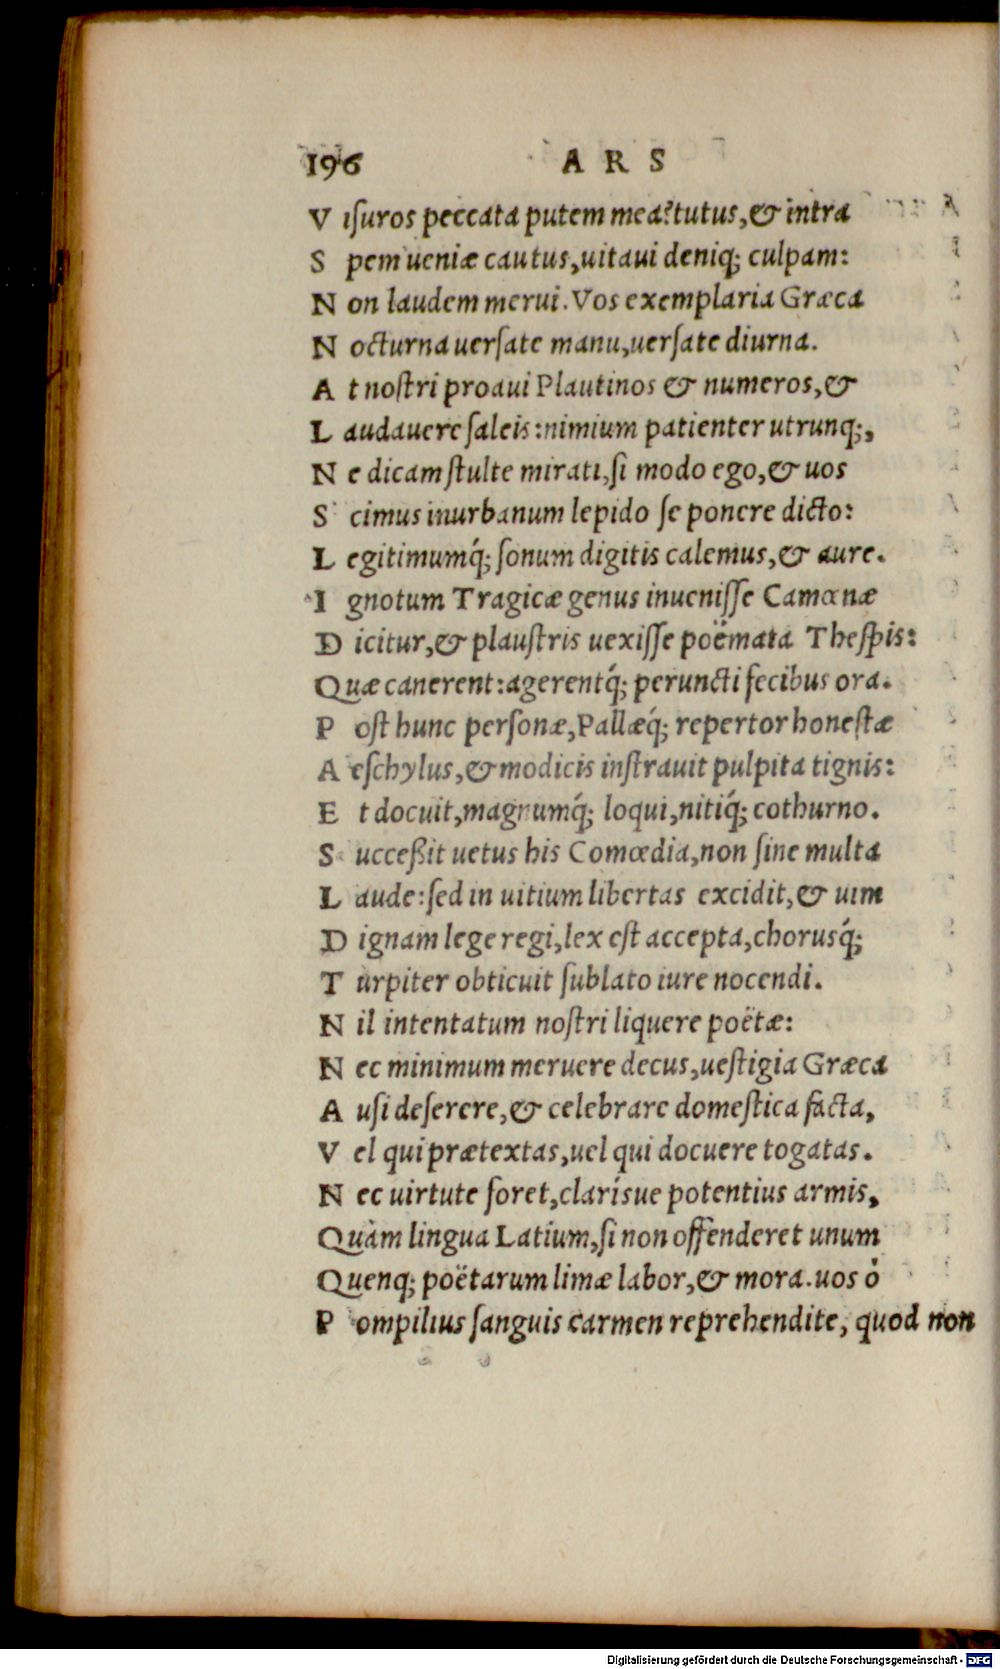 196 ARS
V isuros peccata putem mea? tutus, & intra
S pem ueniæ cautus, uitaui deniq; culpam:
N on laudem merui. Vos exemplaria Græca
N octurna uersate manu, uersate diurna.
A t nostri proaui Plautinos & numeros, &
L audauere saleis: nimium patienter utrunq;,
N e dicam stulte mirati, si modo ego, & uos
S cimus inurbanum lepido se ponere dicto:
L egitimumq́; sonum digitis calemus, & aure.
I gnotum Tragicæ genus inuenisse Camœnæ
D icitur, & plaustris uexisse poëmata Thespis:
Quæ canerent: agerentq́; peruncti fecibus ora.
P ost hunc personæ, Pallæq́; repertor honestæ
A eschylus, & modicis instrauit pulpita tignis:
E t docuit, magnumq́; loqui, nitiq́; cothurno.
S ucceßit uetus his Comœdia, non sine multa
L aude: sed in uitium libertas excidit, & uim
D ignam lege regi, lex est accepta, chorusq́;
T urpiter obticuit sublato iure nocendi.
N il intentatum nostri liquere poëtæ:
N ec minimum meruere decus, uestigia Græca
A usi deserere, & celebrare domestica facta,
V el qui prætextas, uel qui docuere togatas.
N ec uirtute foret, clarísue potentius armis,
Quàm lingua Latium, si non offenderet unum
Quenq; poëtarum limæ labor, & mora. uos ò
P ompilius sanguis carmen reprehendite, quod non
Digitalisierung gefördert durch die Deutsche Forschungsgemeinschaft - DFG